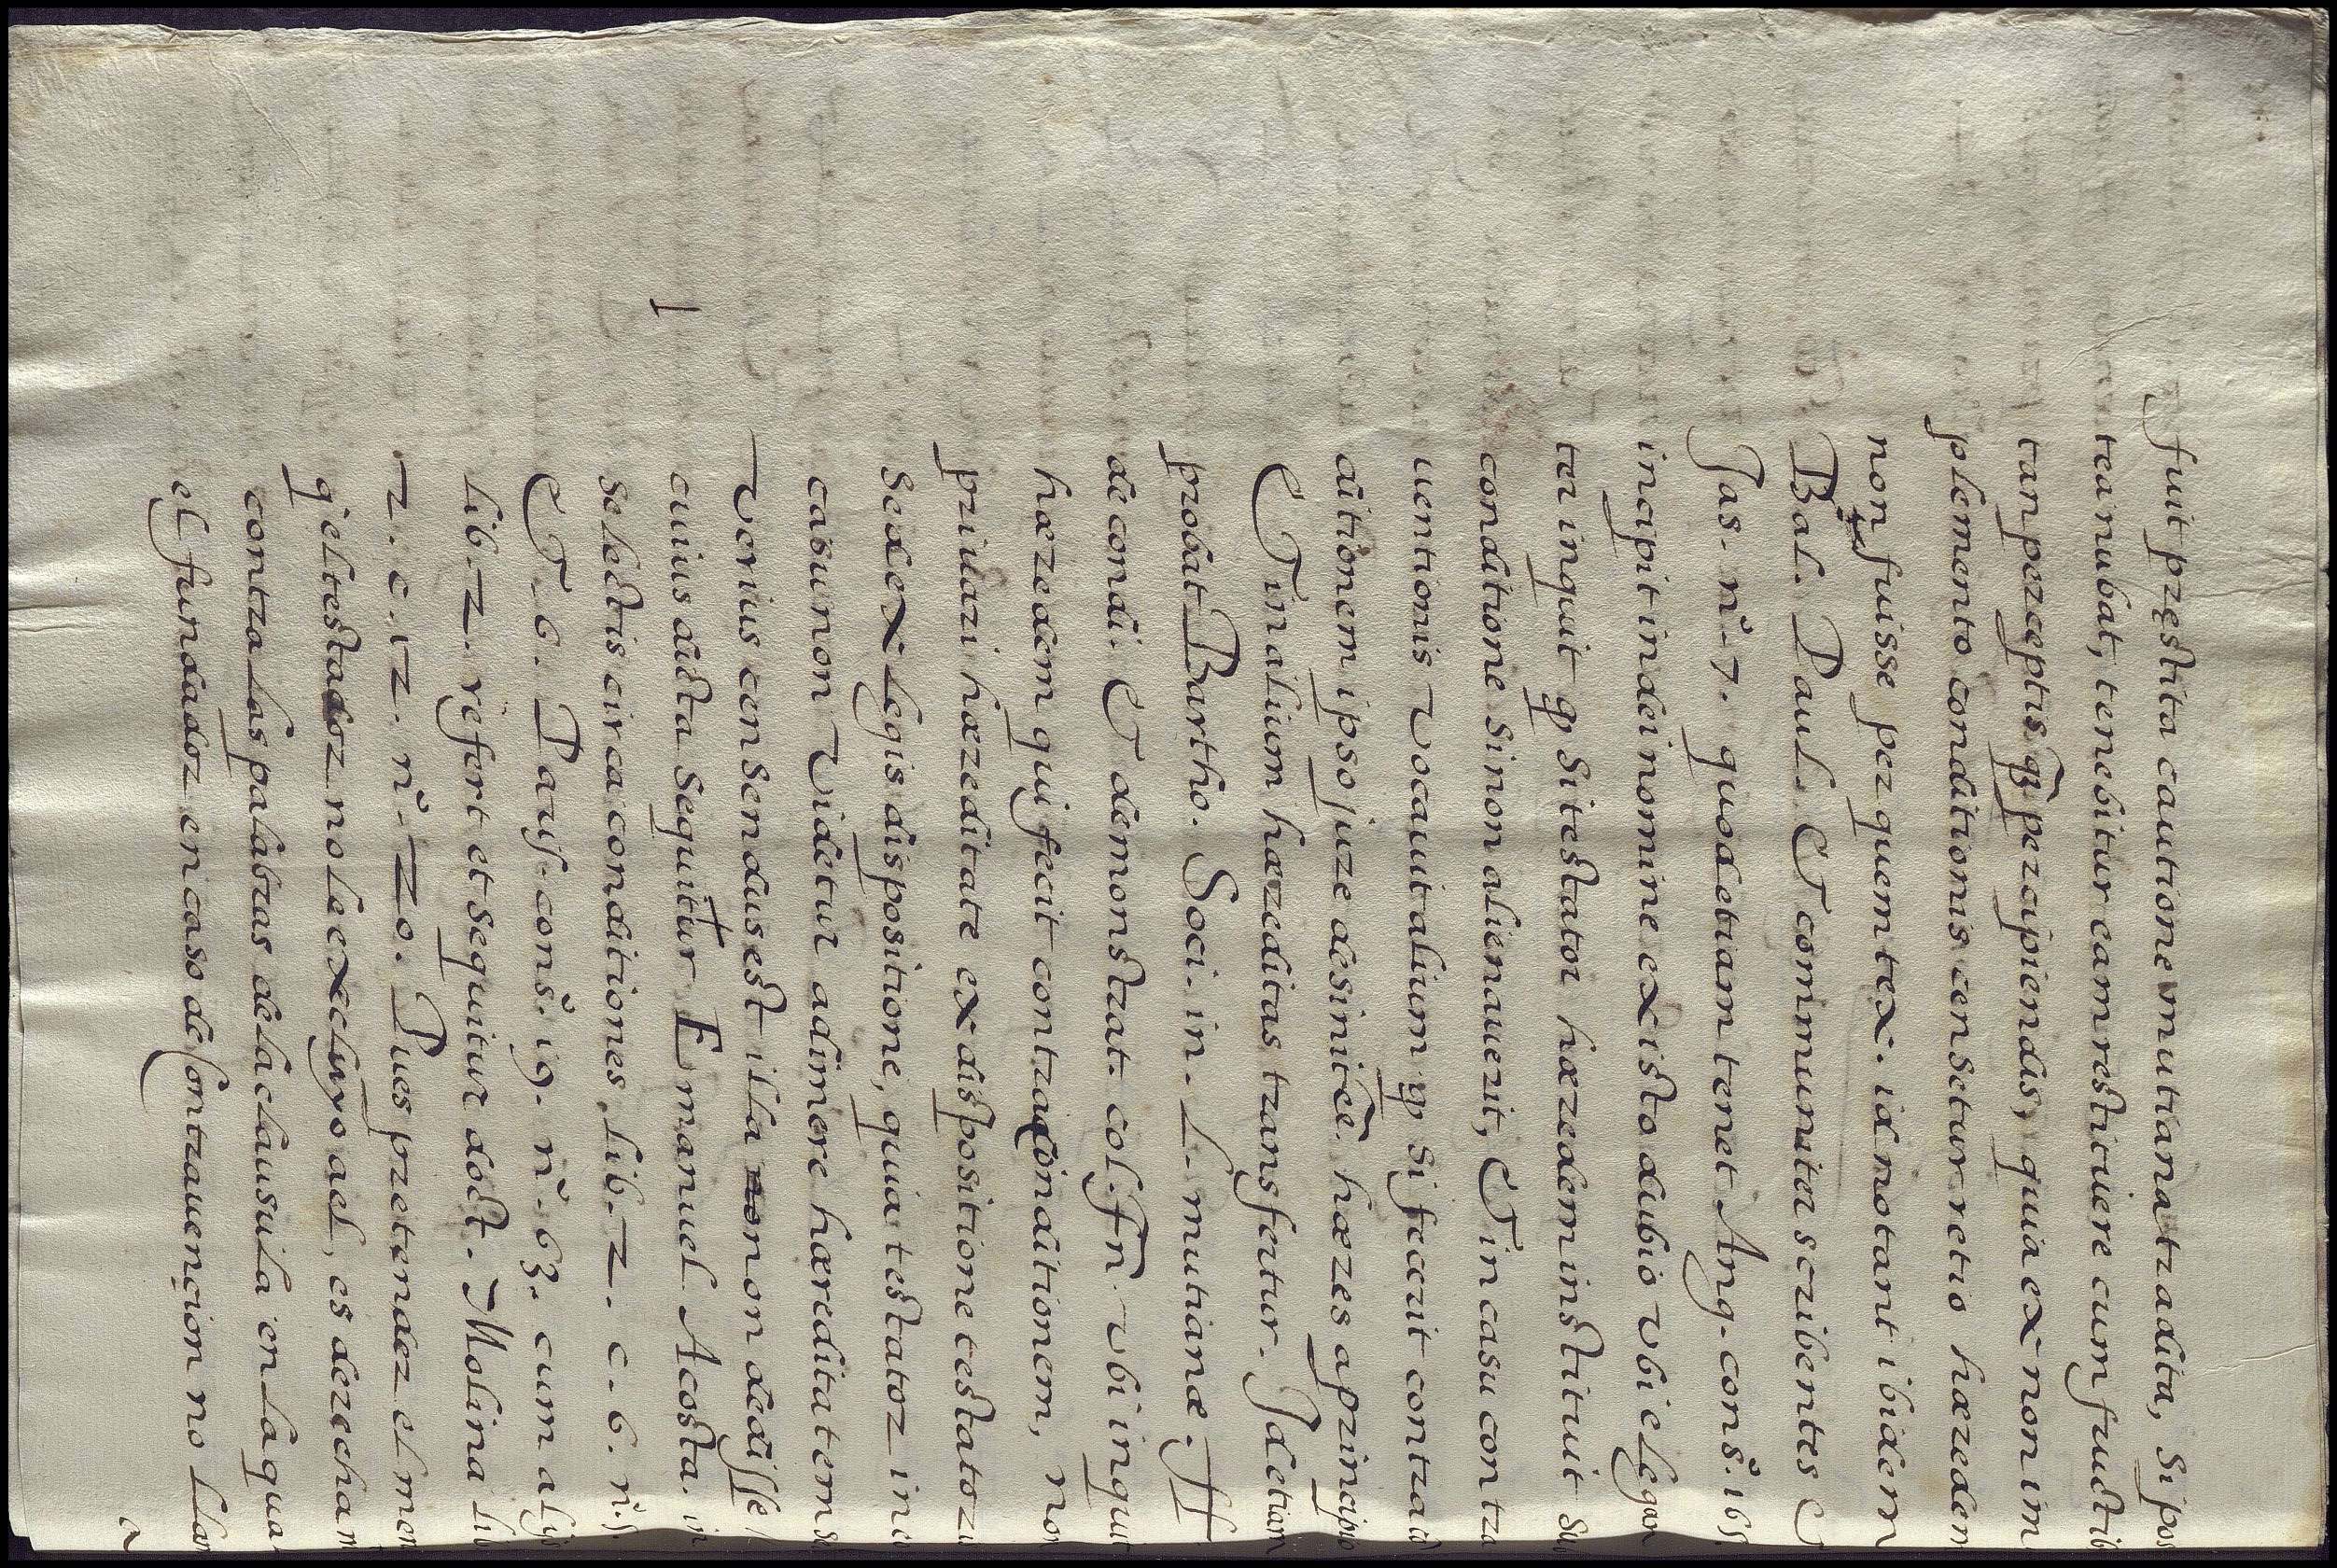 fuit præstita cautione mutiana tradita, si pos
tea nubat, tenebitur eam restituere cum fructib
tan perceptis qȝ percipiendis, quia ex non im
plemento conditionis censetur retio hæredem
non fuisse per quem tex. id notant ibidem
Bal. Paul. Et communiter scribentes Et
Jas. nº. 7. quod etiam tenet Ang. cons. 165.
incipit in dei nomine existo dubio vbi elegan
ter inquit qȝ si testator hæredem instituit sub
conditione si non alienauerit, Et in casu contra
uentionis vocauit alium qȝ si fecerit contra cō
ditionem ipso jure desinit eē hæres a principio
Et in alium hæreditas transfertur. Jd etiam
probat Bartho. Soci. in. L. mutianæ. ff.
de condi. Et demonstrat. col. fn. vbi inquit
hæredem qui fecit contra conditionem, non
priuari hæreditate ex dispositione testatoris
sed ex legis dispositione, quia testator in e
casu non videtur adimere hæreditatem se
verius censendus est illa non dedisse
cuius dicta sequitur Emanuel Acosta. in
selectis circa conditiones lib. 2. c. 6. n.
Et 6. Paris. cons. 19. nº. 63. cum alijs
lib. 2. refert et sequitur doct. Molina lib
2. c. 12. nº. 20. Pues pretender el men
q el testador no le excluyo a el, es derecham
contra las palabras de la clausula en la qual
el fundador en caso de contrauençion no llam